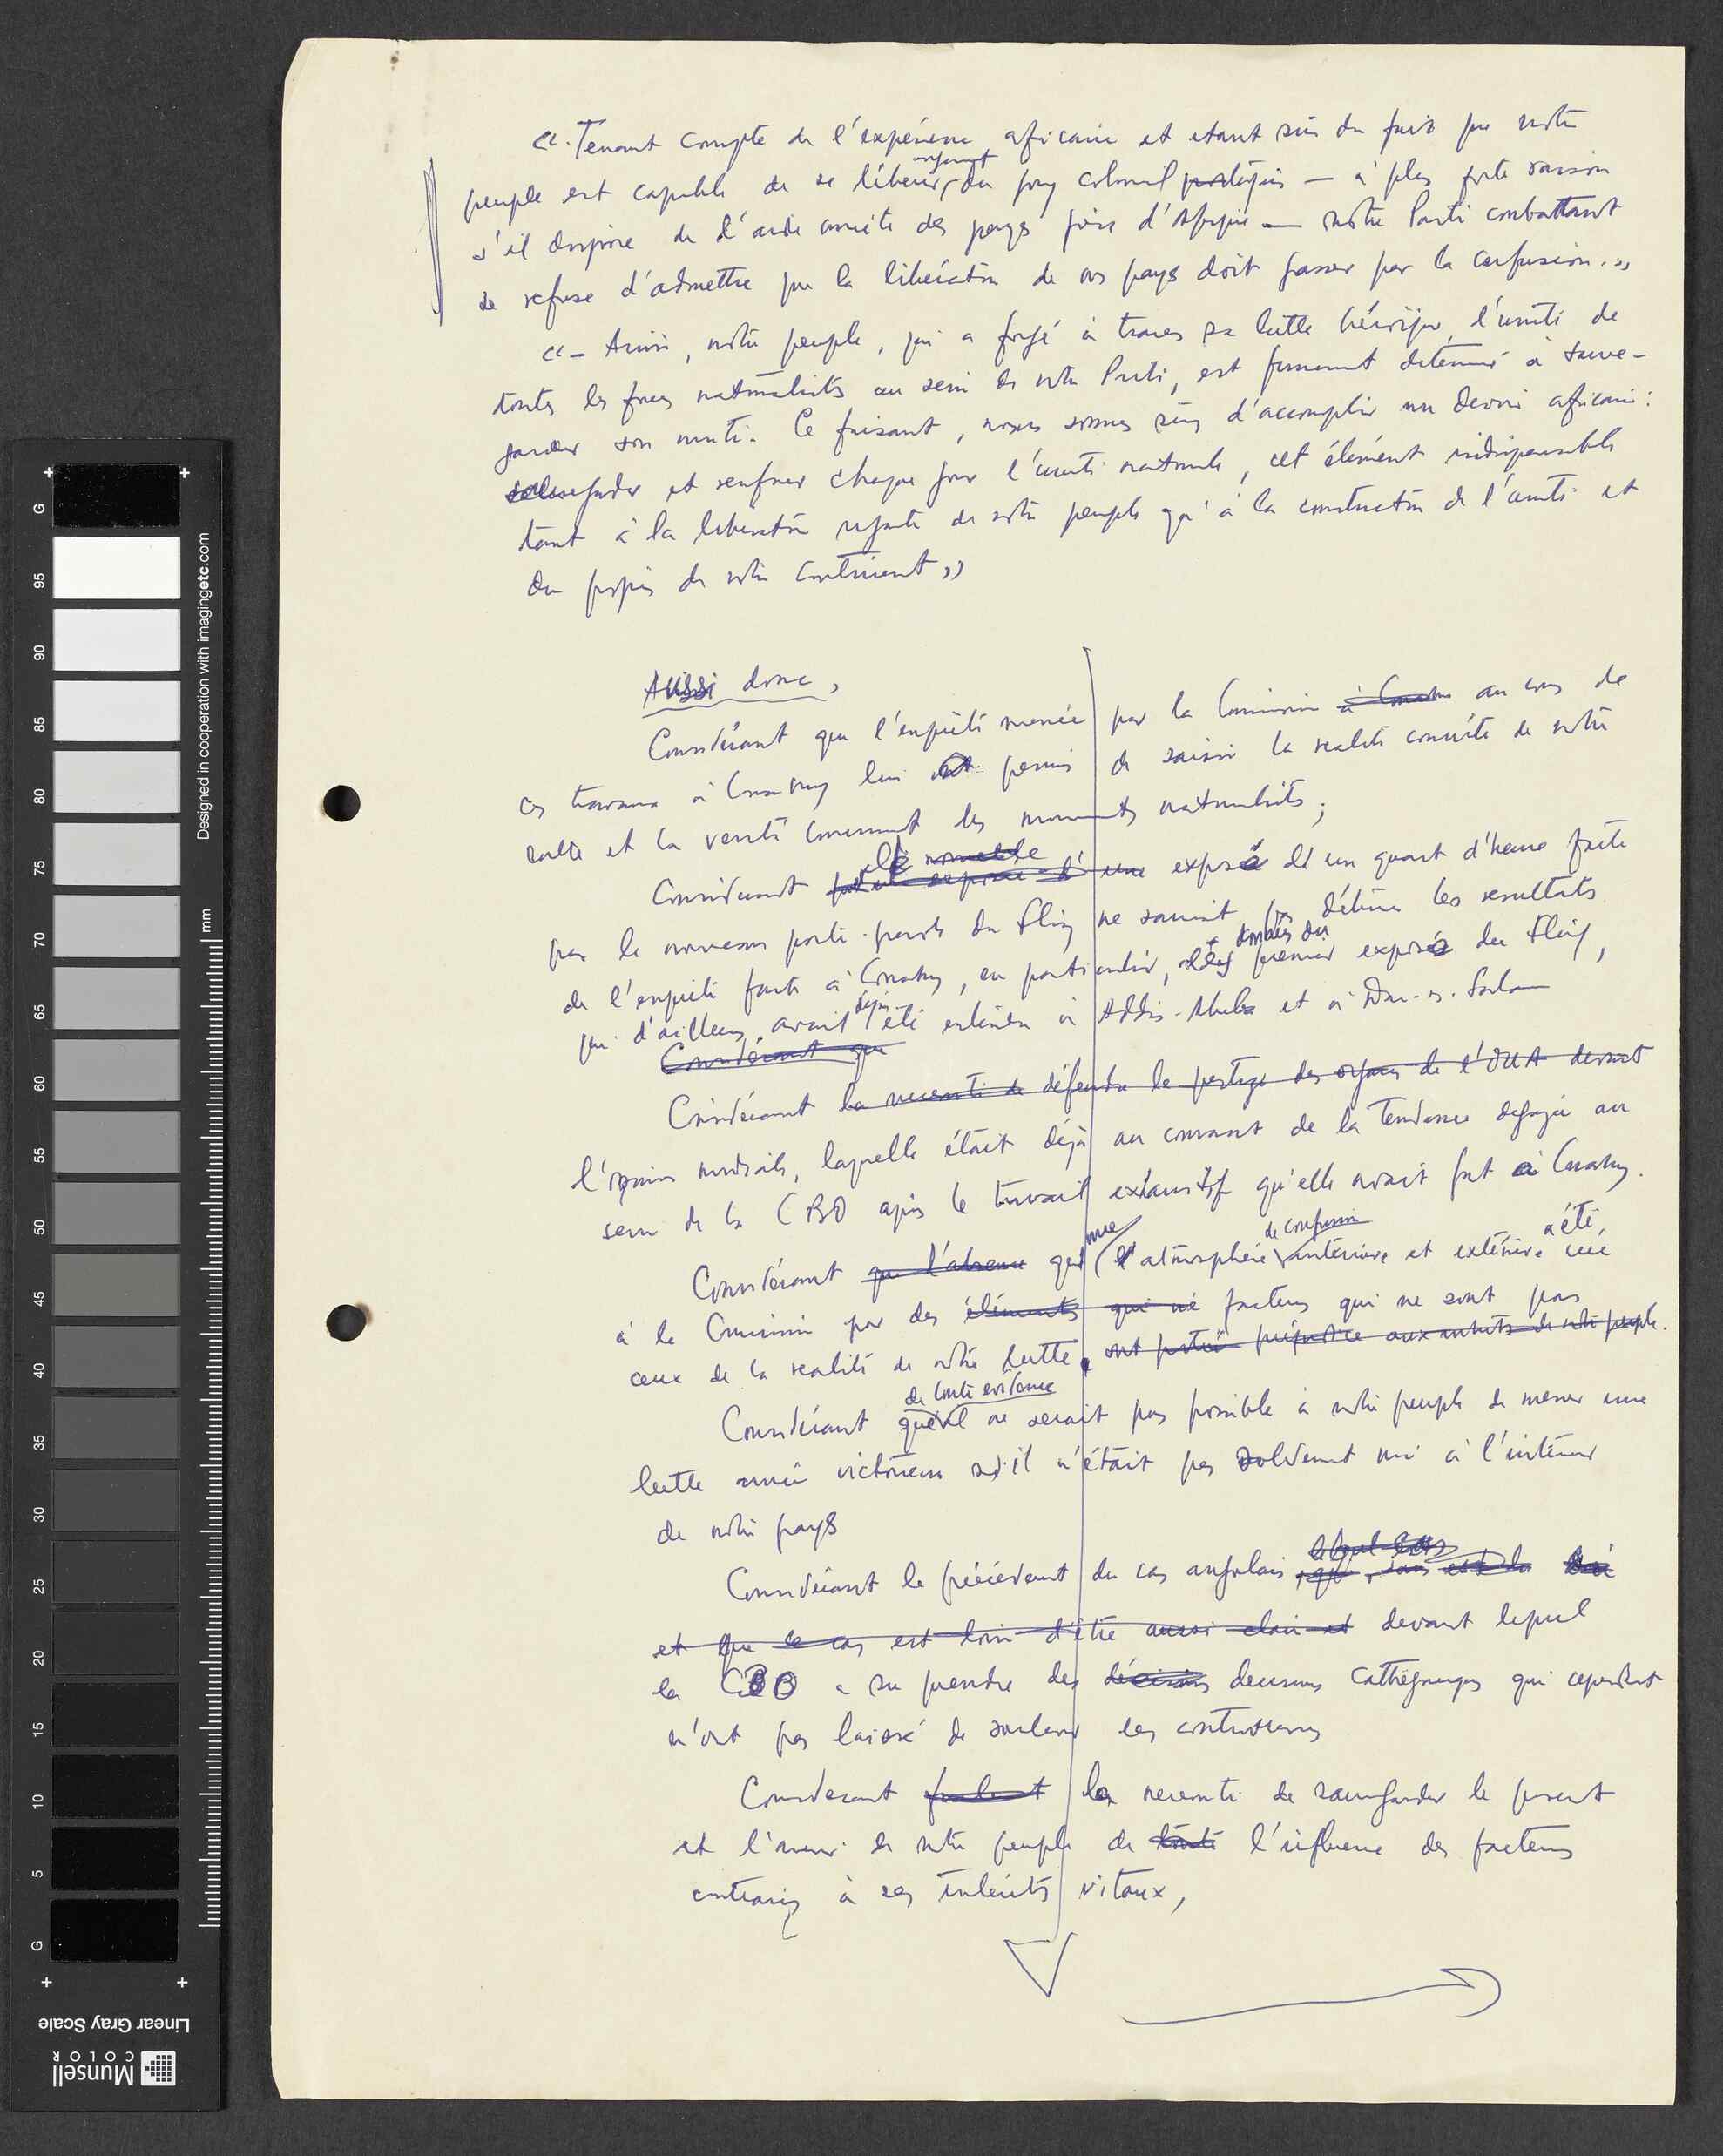 «. Tenant compte de l'expérience africaine et etant sûr du fait que notre
peuple est capable de se libérer du joug colonial portugais — à plus forte raison
s'il dispose de l'aide concrète des pays frères d'Afrique — notre Parti combattant
se refuse d'admettre que la libération de nos pays doit passer par la confusion.»
«- Ainsi, notre peuple, qui a forgé à travers sa lutte héroïque, l'unité de
toutes les forces nationalistes au sein de notre Parti, est fermement déterminé à sauve-
garder son unité. Ce faisant, nous sommes sûrs d'accomplir un devoir africain:
sauvegarder et renforcer chaque jour l'unité nationale, cet élément indispensable
tant à la libération rapide de notre peuple qu'à la construction de l'unité et
du progrès de notre continent»
Aussi donc,
Considérant que l'enquête menée par la Commission à Conakry au cours de
ces travaux à Conakry lui a permis de saisir la réalité concrète de notre
lutte et la vérité concernant les mouvements nationalistes;
Considérant exposé d'un quart d'heure faite
par le nouveau porte-parole du Fling ne saurait pas détruire les resultats
de l'enquête faite à Conakry, en particulier, données du premier exposé du Fling,
qui d'ailleurs avait déjà été entendu à Addis-Abeba et à Dar-es-Salam
Considérant que
Considérant la necessité de défendre le prestige des organes de l'OUA devant
l'opinion mondiale, laquelle était déjà au courant de la tendance degagée au
sein de la CBO après le travail exhaustif qu'elle avait fait à Conakry.
Considérant que l'absence que une atmosphère de confusion intérieure et extérieure a été créé
à la Commission par des éléments qui ne facteurs qui ne sont pas
ceux de la realité de notre lutte, ont porté préjudice aux intérêts de notre peuple.
Considérant que de toute evidence il ne serait pas possible à notre peuple de mener une
lutte armée victorieuse s'il n'était pas solidement uni à l'intérieur
de notre pays
Considérant le précédent du cas angolais
et que ce cas est loin d'être aussi clair et devant lequel
la CBO a su prendre des décisions decisions cathégoriques qui cependant
n'ont pas laissé de soulever des controverses
Considerant la necessité de sauvegarder le present
et l'avenir de notre peuple de toute l'influence des facteurs
contraires à ses intérêts vitaux,
G 95 90 85 80 75 70 65 60 55 50 45 40 35 30 25 20 15 10 5 G
mm
Designed in cooperation with imagingetc.com
Linear Gray Scale
Munsell
COLOR